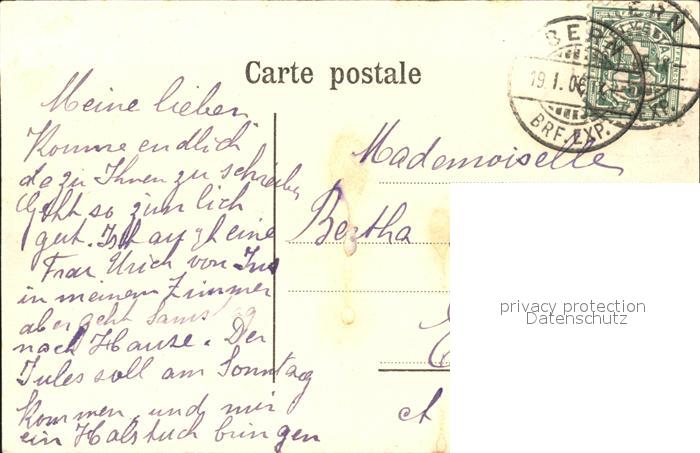 Carte postale
BERN
19.I.06
BRF. EXP.
Meine lieben
Komme endlich
dazu Ihnen zu schreiben
Geht so zimlich
gut. Ist auch eine
Frau Urich von Ins
in meinem Zimmer
aber geht Samstag
nach Hause. Der
Jules soll am Sonntag
kommen, und mir
ein Halstuch bringen
Mademoiselle
Bertha
privacy protection
Datenschutz